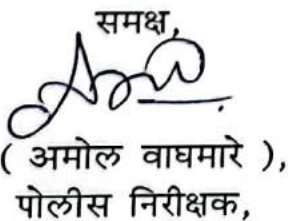 समक्ष,
( अमोल वाघमारे ),
पोलीस निरीक्षक,